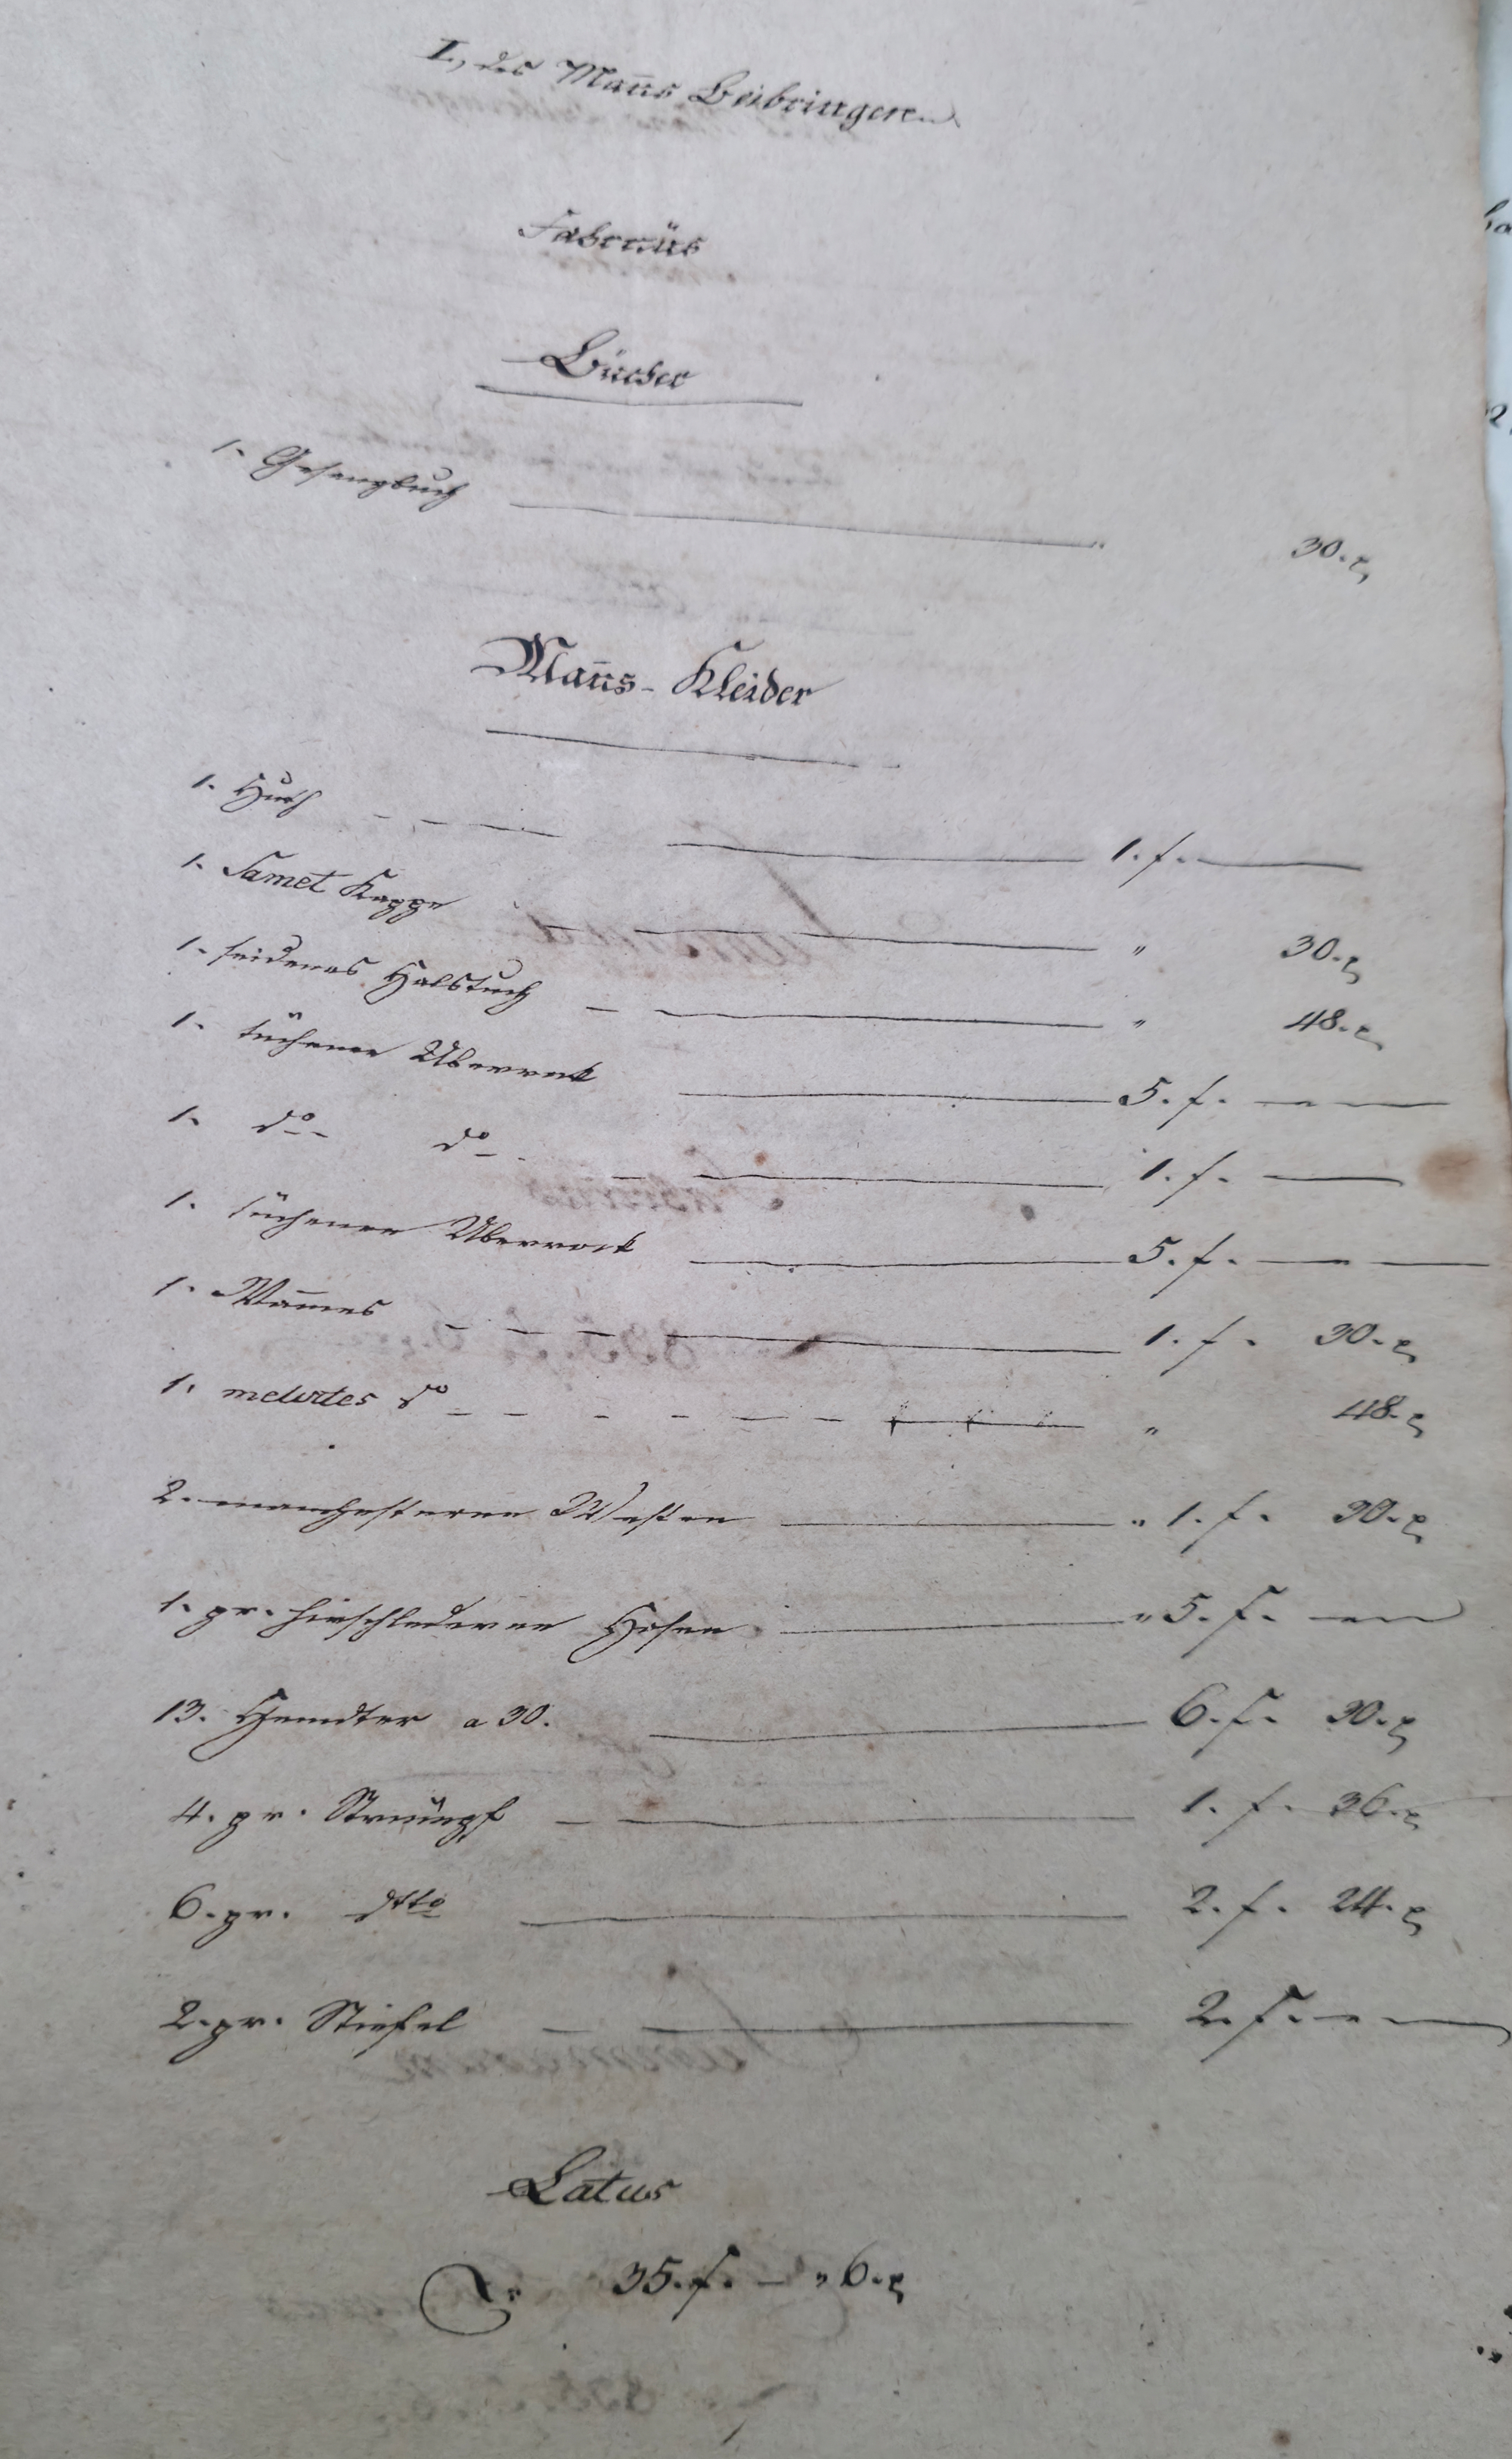 I, des Man̄s Beibringen.
Fahrnüs
Bücher
1. Gesangbuch — " 30. x
Man̄s-Kleider
1. Huth — 1. f. —
1. Samet Kappe — " 30. x
1. seidenes Halstuch — " 48. x
1. tüchener Überrock — 5. f. —
1. do do — 1. f. —
1. tüchener Überrock — 5. f. —
1. Wam̄es — 1. f. 30. x
1. melirtes do — " 48. x
2. manchesterne Westen — " 1. f. 30. x
1. pr. hirschlederne Hosen — " 5. f. —
13. Hemdter a 30. — 6. f. 30. x
4. pr. Strümpf — 1. f. 36. x
6. pr. dtto — 2. f. 24. x
2. pr. Stiefel — 2. f. —
Latus
35. f. — " 6. x